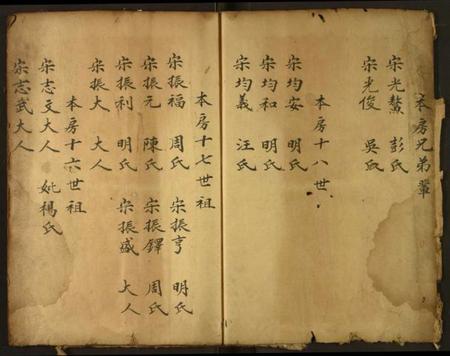 本房兄弟輩
宋光鰲 彭氏
宋光俊 吳氏
本房十八世
宋均安 明氏
宋均和 明氏
宋均義 汪氏
本房十七世祖
宋振福 周氏 宋振亨 明氏
宋振元 陳氏 宋振鐸 周氏
宋振利 明氏 宋振盛 大人
宋振大 大人
本房十六世祖
宋志文大人 姚楊氏
宋志武大人